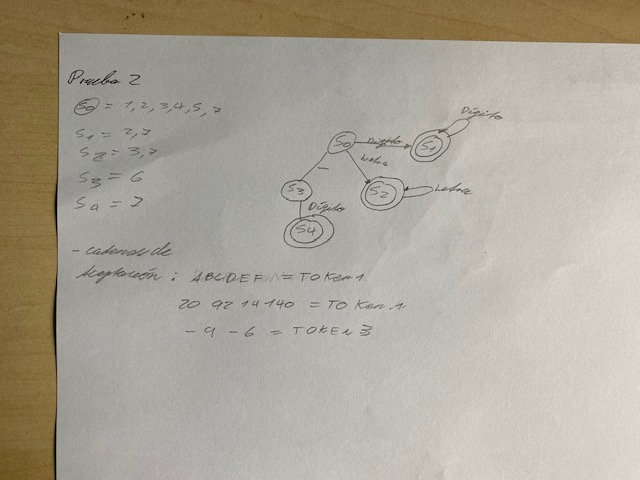 Prueba 2
S0 = 1,2,3,4,5,7
S1 = 2,7
S2 = 3,7
S3 = 6
S4 = 7
Digito
S0 Digito S1
Letra
-
S3 S2 Letra
Digito
S4
- cadenas de
Aceptación : ABCDEF = TOKEN 1
20 92 14 140 = TOKEN.1
- 9 - 6 = TOKEN 3